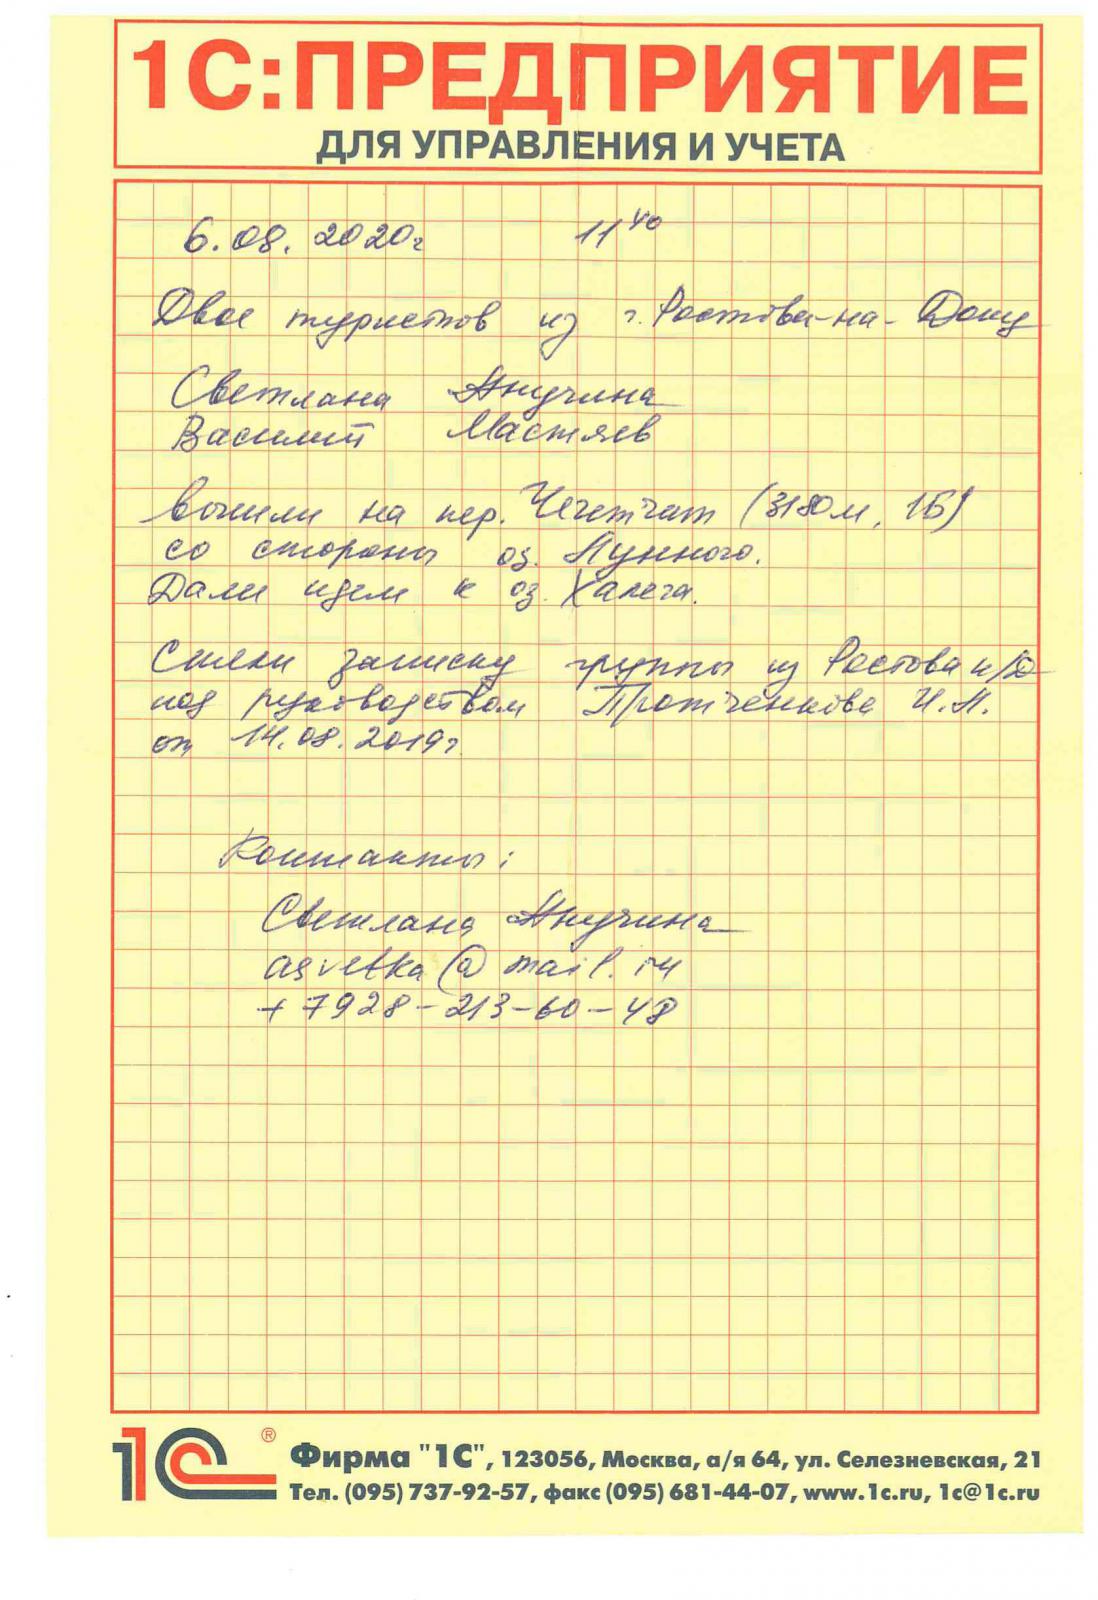 1С:ПРЕДПРИЯТИЕ
ДЛЯ УПРАВЛЕНИЯ И УЧЕТА
6.08.2020г 11⁴⁰
Двое туристов из г. Ростова-на-Дону
Светлана Анучина
Василий Мастяев
вышли на пер. Чегетчат (3180м, 1Б)
со стороны оз. Лунного.
Дале идем к оз. Халега.
Сняли записку группы из Ростова н/Д
под руководством Протченкова И.А.
от 14.08.2019г
Контакты:
Светлана Анучина
asvetka@mail.ru
+7928-213-60-48
1С ®
Фирма "1С", 123056, Москва, а/я 64, ул. Селезневская, 21
Тел. (095) 737-92-57, факс (095) 681-44-07, www.1c.ru, 1c@1c.ru